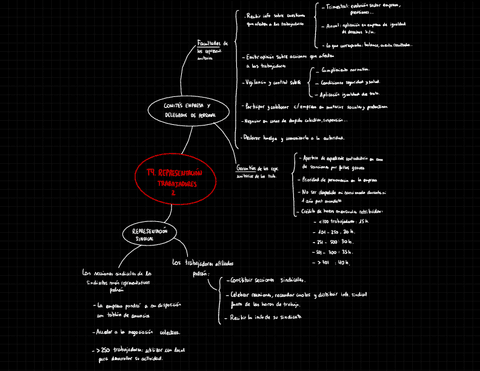 Facultades de
los represent.
unitarios
- Recibir info sobre cuestiones
que afecten a los trabajadores
- Trimestral: evolución sector empresa,
previsiones...
- Anual: aplicación en empresa de igualdad
de derechos h/m.
- Lo que corresponda: balance, cuenta resultados...
- Emitir opinión sobre acciones que afecten
a los trabajadores
- Vigilancia y control sobre
- Cumplimiento normativa.
- Condiciones seguridad y salud.
- Aplicación igualdad de trato.
- Participar y colaborar c/empresa en materias sociales y productivas
- Negociar en casos de despido colectivo, suspensión...
- Declarar huelga y comunicarlo a la autoridad.
COMITÉS EMPRESA Y
DELEGADOS DE PERSONAL
Garantías de los repr.
unitarios de los trab.
- Apertura de expediente contradictorio en caso
de sanciones por faltas graves
- Prioridad de permanencia en la empresa
- No ser despedido ni sancionado durante ni
1 año post mandato
- Crédito de horas mensuales retribuidas:
- <100 trabajadores: 15 h.
- 101 - 250: 20 h.
- 251 - 500: 30 h.
- 501 - 700: 35 h.
- > 701: 40 h.
T7. REPRESENTACIÓN
TRABAJADORES
1
REPRESENTACIÓN
SINDICAL
Las secciones sindicales de los
sindicatos más representativos
podrán
- La empresa pondrá a su disposición
un tablón de anuncios
- Acceder a la negociación colectiva.
- > 250 trabajadores: utilizar un local
para desarrollar su actividad.
Los trabajadores afiliados
podrán:
- Constituir secciones sindicales.
- Celebrar reuniones, recaudar cuotas y distribuir info sindical
fuera de las horas de trabajo.
- Recibir la info de su sindicato